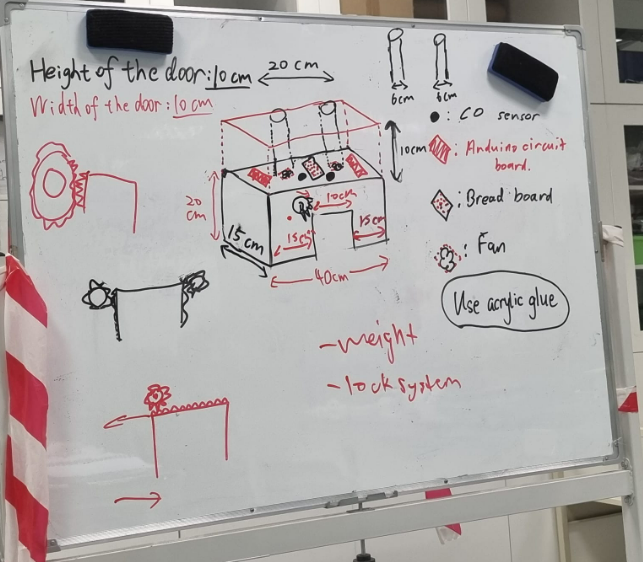 Height of the door: 10 cm
20 cm
Width of the door: 10 cm
6cm
6cm
: CO sensor
10cm
: Arduino circuit
board.
20
cm
10cm
: Bread board
15 cm
15cm
15cm
40cm
: Fan
Use acrylic glue
-weight
-lock system